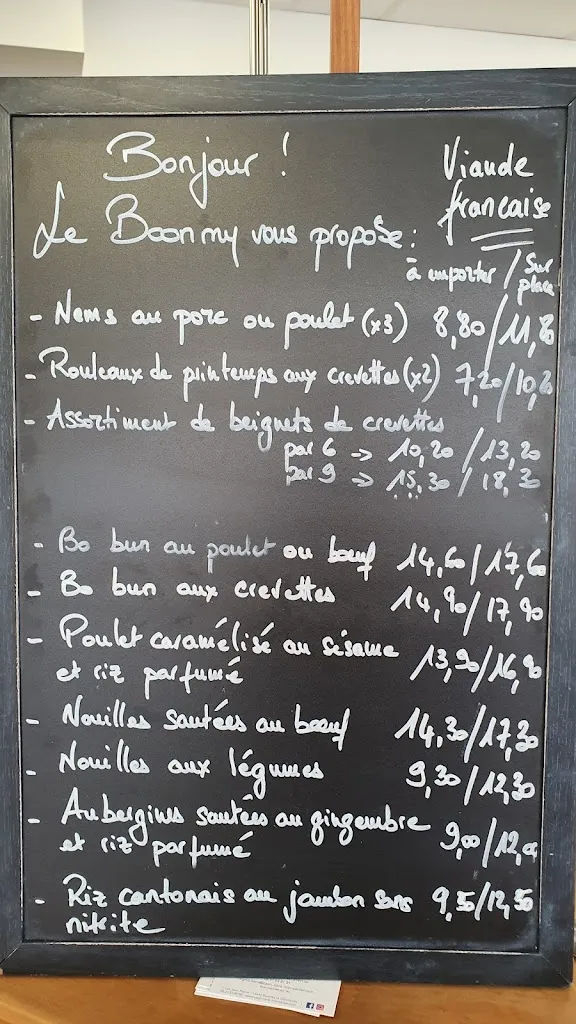 Bonjour !
Viande
francaise
Le Boonmy vous propose :
à emporter / Sur place
- Nems au porc ou poulet (x3) 8,80/11,80
- Rouleaux de printemps aux crevettes (x2) 7,20/10,20
- Assortiment de beignets de crevettes
par 6 -> 10,20 / 13,20
par 9 -> 15,30 / 18,30
- Bo bun au poulet ou bœuf 14,60/17,60
- Bo bun aux crevettes 14,90/17,90
- Poulet caramélisé au sésame
et riz parfumé 13,90/16,90
- Nouilles sautées au bœuf 14,30/17,30
- Nouilles aux légumes 9,30/12,30
- Aubergines sautées au gingembre
et riz parfumé 9,00/12,00
- Riz cantonais au jambon sans 9,50/12,50
nitrite